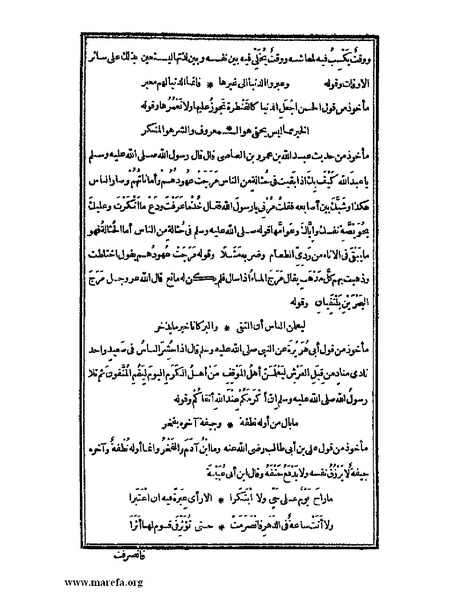 ووقتٌ يكسب فيه لمعاشه ووقتٌ يُخلّي فيه بين نفسه وبين لذتها ليستعين بذلك على سائر
الاوقات وقوله وعبروا الدنيا الى غيرها * فانما الدنيا لهم معبر
مأخوذ من قول الحسن اجعل الدنيا كالقنطرة تجوز عليها ولا تعمرها وقوله
الخير مما ليس يخفى هو الـ*ـمعروف والشر هو المنكر
مأخوذ من حديث عبد الله بن عمرو بن العاصى قال قال رسول الله صلى الله عليه وسلم
يا عبد الله كيف بك اذا بقيت فى حثالة من الناس مرجت عهودهم وأماناتهم وصار الناس
هكذا وشبك بين أصابعه فقلت مرنى يا رسول الله فقال خذ ما عرفت ودع ما أنكرت وعليك
بخويصة نفسك واياك وعوامها قوله صلى الله عليه وسلم فى حثالة من الناس أما الحثالة فهو
ما يبقى فى الاناء من ردىّ الطعام وضربه مثلا وقوله مرجت عهودهم يقول اختلطت
وذهبت بهم كل مذهب يقال مرج الماء اذا سال فلم يكن له مانع قال الله عز وجل مرج
البحرين يلتقيان وقوله
ليعلمن الناس أن التقى * والبر كانا خير ما يذخر
مأخوذ من قول أبى هريرة عن النبى صلى الله عليه وسلم قال اذا حشر الناس فى صعيد واحد
نادى مناد من قبل العرش ليعلمن أهل الموقف من أهل الكرم اليوم ليقم المتقون ثم تلا
رسول الله صلى الله عليه وسلم ان أكرمكم عند الله أتقاكم وقوله
ما بال من أوله نطفة * وجيفة آخره يفخر
مأخوذ من قول على بن أبى طالب رضى الله عنه وما ابن آدم والفخر وانما أوله نطفة وآخره
جيفة لا يرزق نفسه ولا يدفع حتفه وقال ابن أبى عيينة
ما راح يوم على حى ولا ابتكرا * الا رأى عبرة فيه ان اعتبرا
ولا أتت ساعة فى الدهر فانصرمت * حتى تؤثر فى قوم لها أثرا
فانصرفت
www.marefa.org